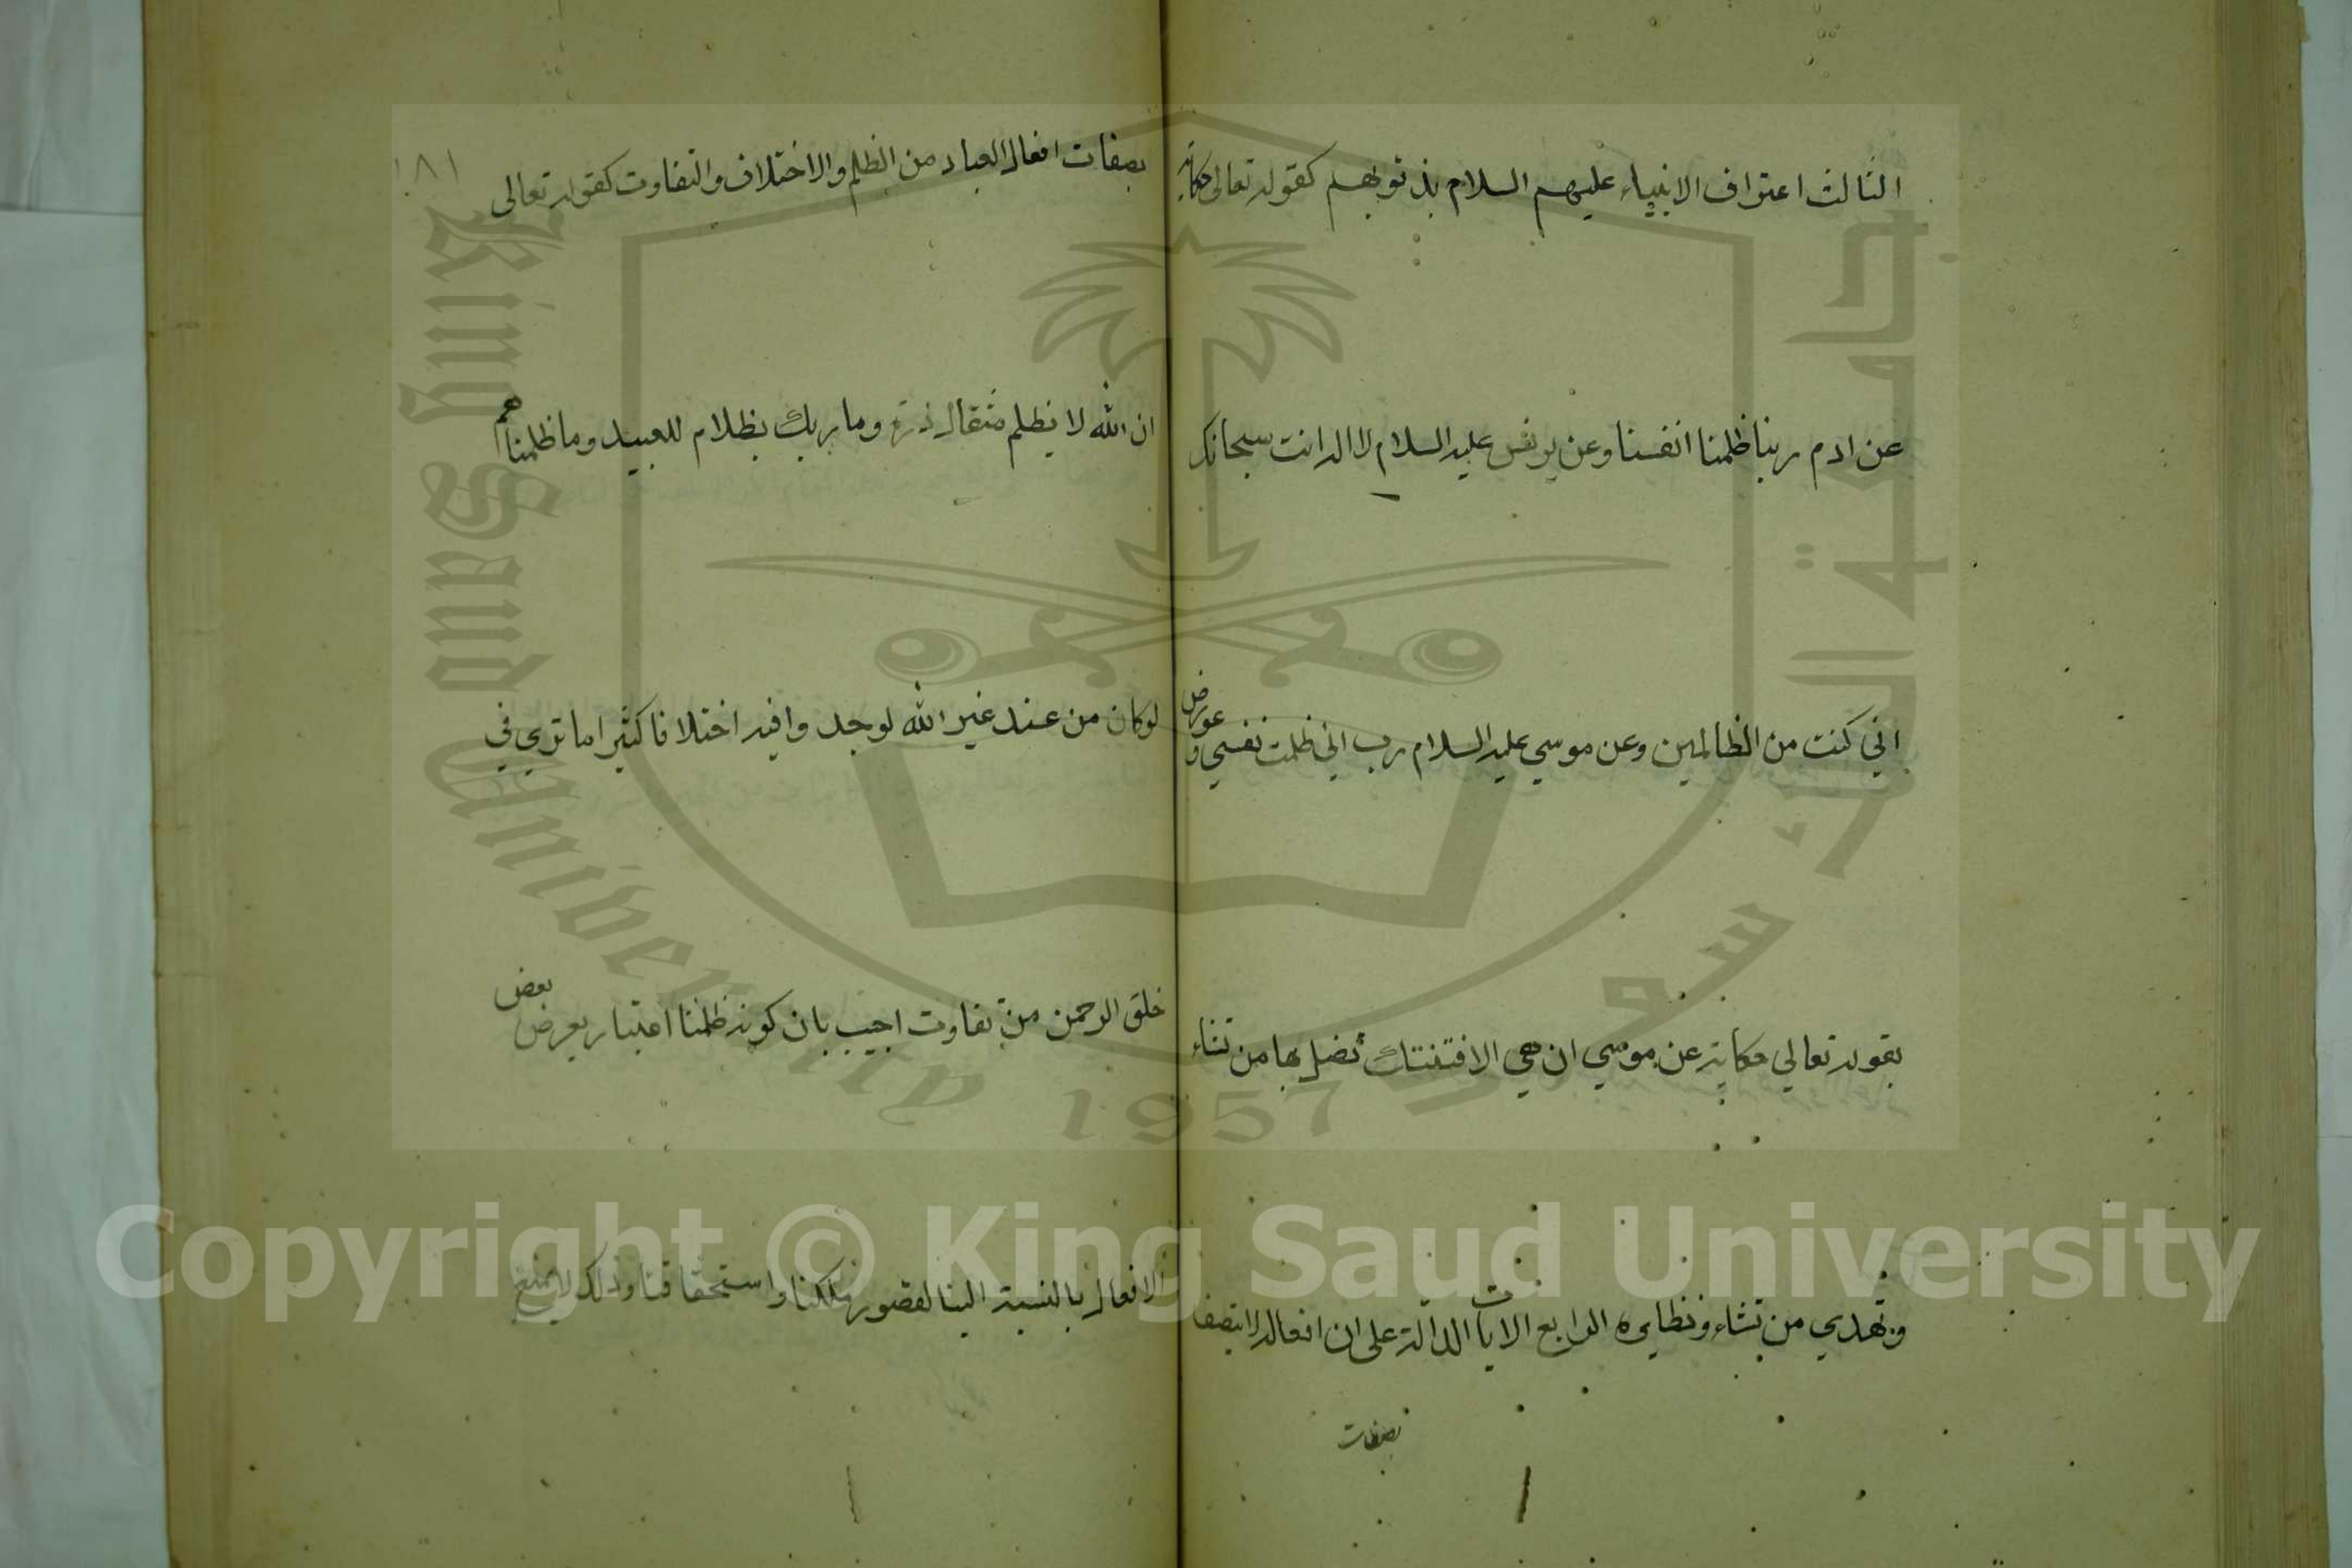 الثالث اعتراف الانبياء عليهم السلام بذنوبهم كقوله تعالى حكاية
عن ادم ربنا ظلمنا انفسنا وعن يونس عليه السلام لا اله انت سبحانك
اني كنت من الظالمين وعن موسي عليه السلام رب اني ظلمت نفسي وعورض
بقوله تعالي حكاية عن موسي ان هي الا فتنتك تضل بها من تشاء
وتهدي من تشاء ونظايره الرابع الايات الدالة على ان افعاله لا يتصف
بصفات
١٨١
بصفات افعال العباد من الظلم والاختلاف والتفاوت كقوله تعالى
ان الله لا يظلم مثقال ذرة وما ربك بظلام للعبيد وما ظلمناهم
لو كان من عند غير الله لوجدوا فيه اختلافا كثيرا ما تري في
خلق الرحمن من تفاوت اجيب بان كونه ظلمنا اعتبار يعرض بعض
الافعال بالنسبة الينا لقصور ملكنا واستحقاقنا وذلك لا يمنع
جامعة الملك سعود
King Saud University
1957
Copyright © King Saud University